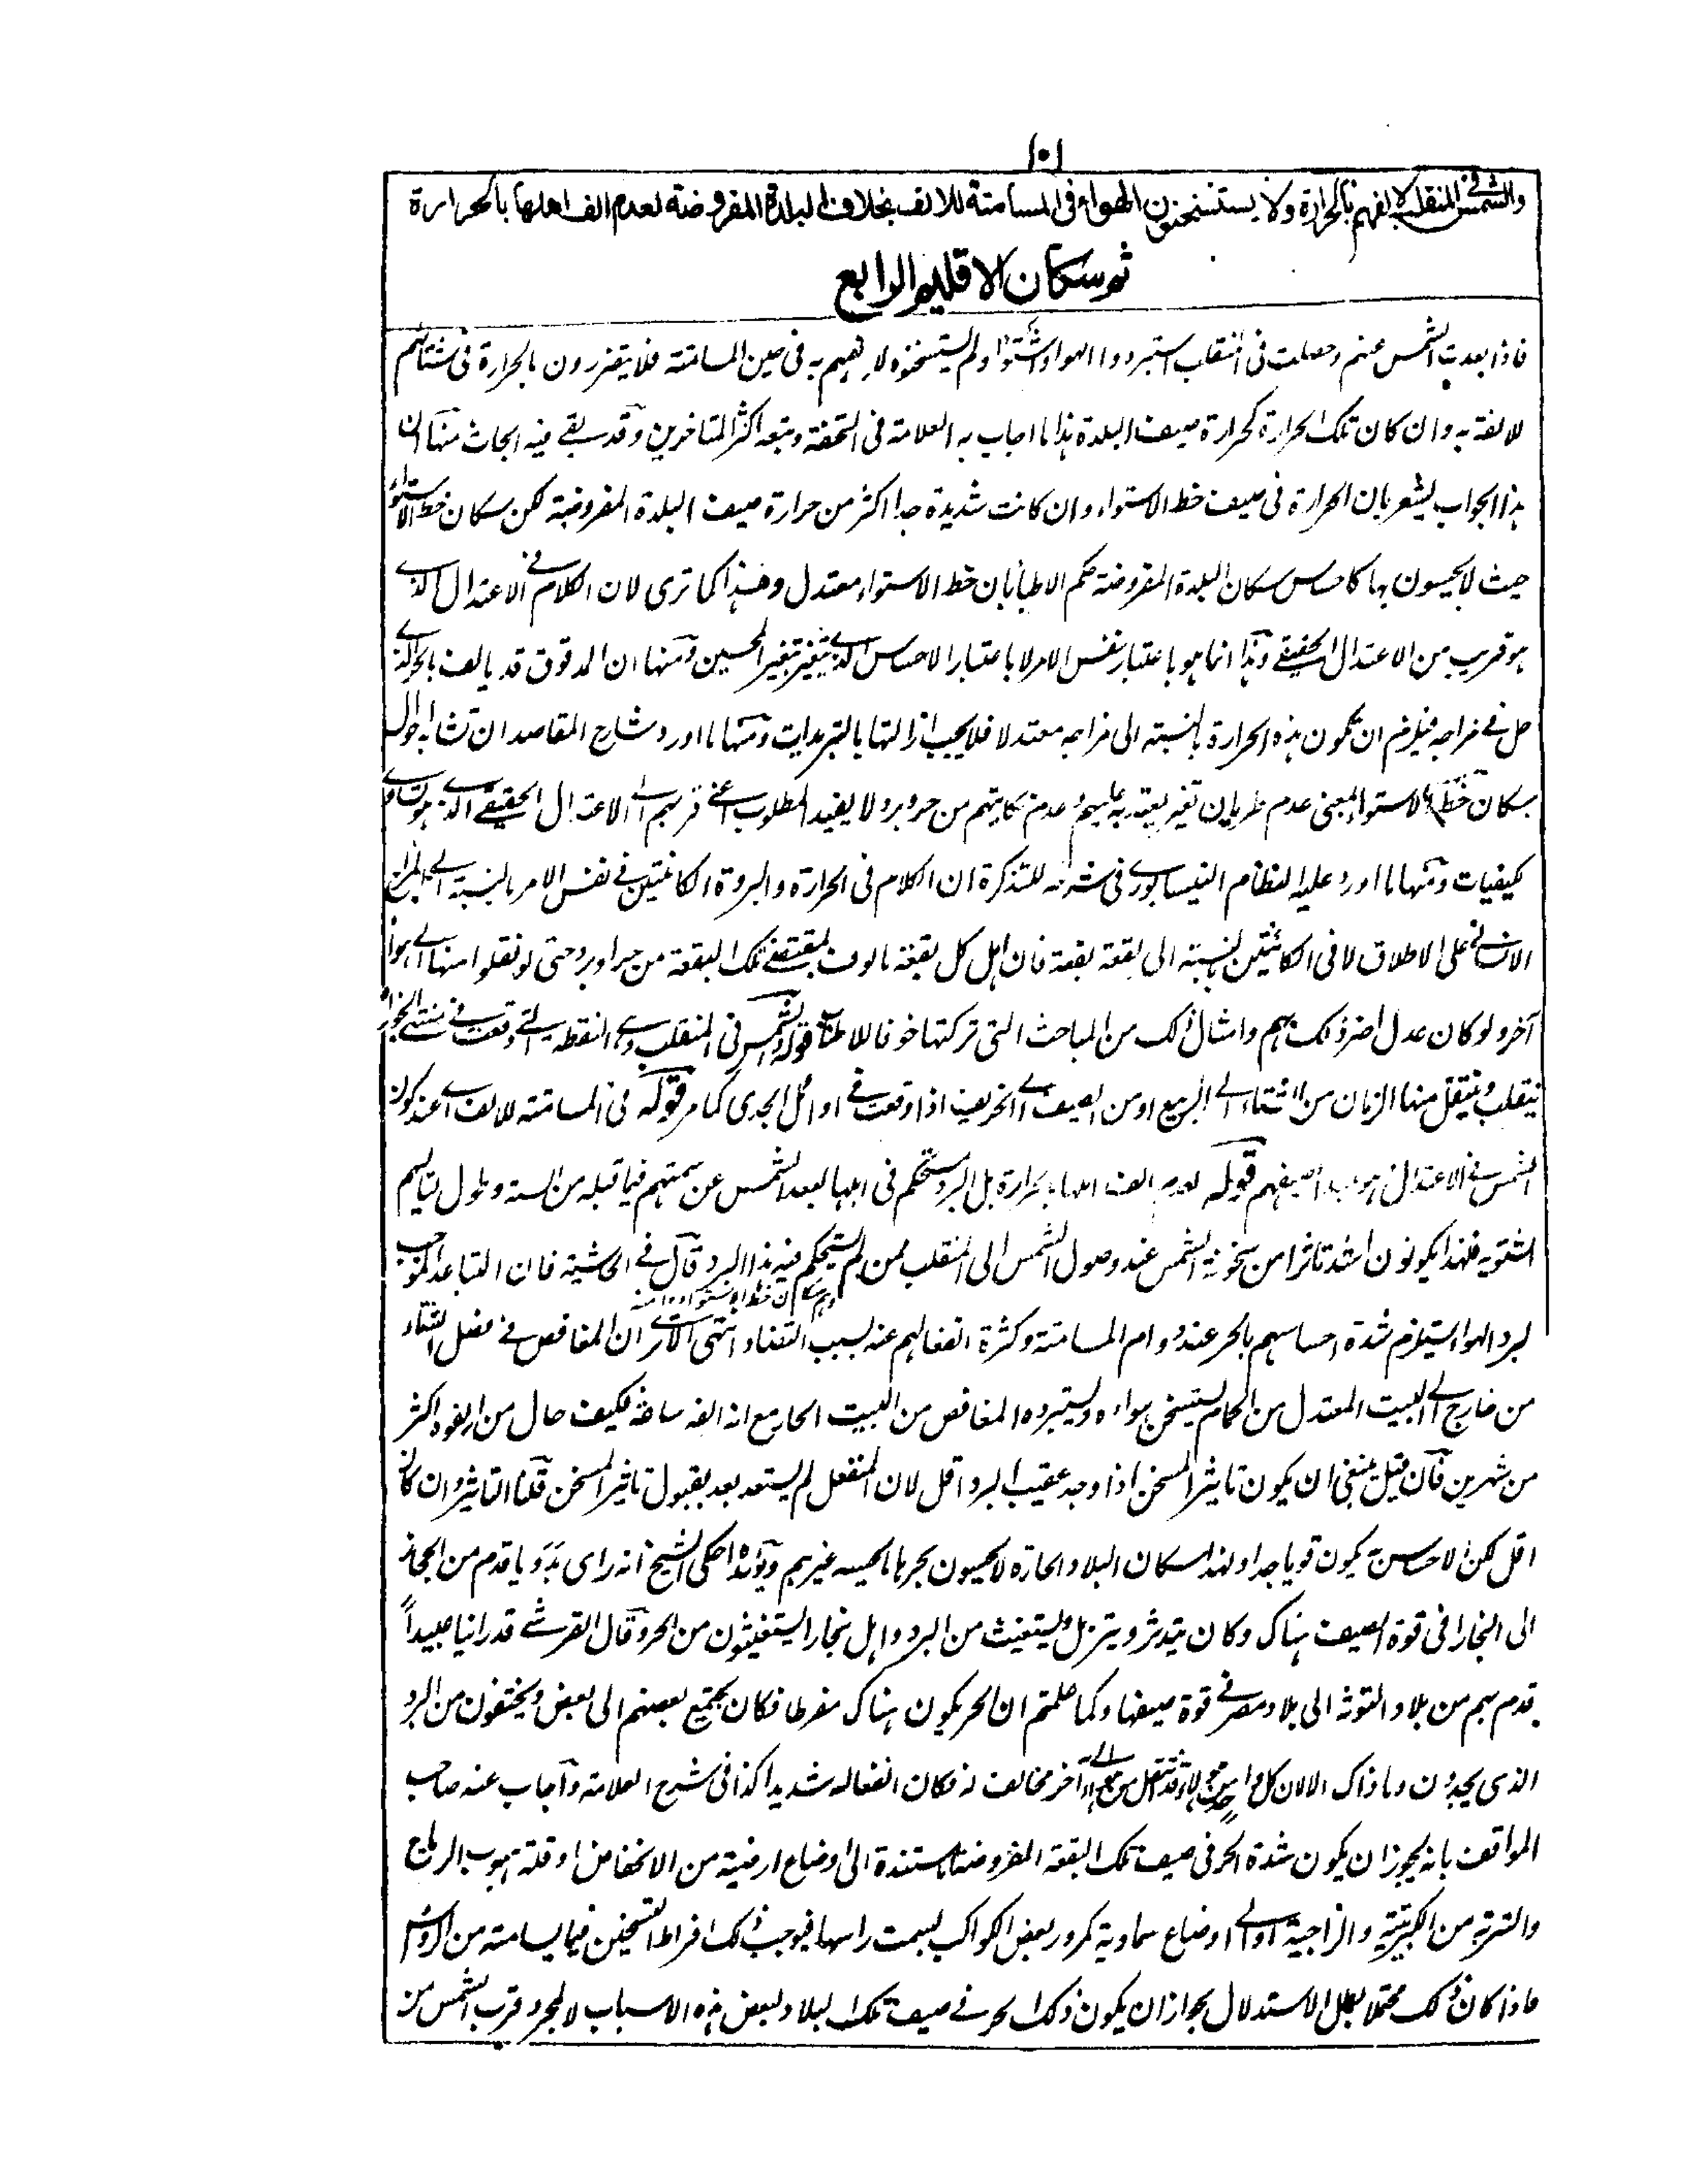 ١٠١
والشمس في المنقلب لالفهم بالحرارة ولا يستسخنون الهواء في المسامتة للالف بخلاف البلدة المفروضة لعدم الف اهلها بالحرارة
ثم سكان الاقليم الرابع
فاذا بعدت الشمس عنهم وحصلت في المنقلب استبردوا الهواء وشتوا ولم يستسخنوه لالفهم به في حين المسامتة فلا يتضررون بالحرارة في شتائهم
لالفة به وان كان تلك الحرارة كحرارة صيف البلدة هذا ما اجاب به العلامة في التحفة وتبعه اكثر المتاخرين وقد بقي فيه ابحاث منها ان
هذا الجواب يشعر بان الحرارة في صيف خط الاستواء وان كانت شديدة جدا اكثر من حرارة صيف البلدة المفروضة لكن سكان خط الاستواء
حيث لا يحسون بها كاحساس سكان البلدة المفروضة حكم الاطباء بان خط الاستواء معتدل وهذا كما ترى لان الكلام في الاعتدال الذي
هو قريب من الاعتدال الحقيقي وذا انما هو باعتبار نفس الامر لا باعتبار الاحساس الذي يتغير بتغير المحسين ومنها ان المدقوق قد يالف بالحرارة
في مزاجه فيلزم ان تكون هذه الحرارة بالنسبة الى مزاجه معتدلا فلا يجب ازالتها بالتبريدات ومنها ما اورد شارح المقاصد ان تشابه احوال
سكان خط الاستواء بمعنى عدم طريان تغير يعتد به عليهم وعدم نكايتهم من حر وبرد لا يفيد المطلوب اعني قربهم الى الاعتدال الحقيقي الذي هو تساوي
كيفيات ومنها ما اورد عليه النظام النيسابوري في شرحه للتذكرة ان الكلام في الحرارة والبرودة الكائنتين في نفس الامر بالنسبة الى المزاج
الانساني على الاطلاق لا في الكائنتين بالنسبة الى بقعة بقعة فان اهل كل بقعة مالوف بمقتضى تلك البقعة من حر او برد حتى لو نقلوا منها الى هواء
آخر ولو كان عدل اضر ذلك بهم وامثال ذلك من المباحث التي تركتها خوفا للاطناب قوله والشمس في المنقلب وهي النقطة التي وقعت في
ينقلب وينتقل منها الزمان من الشتاء الى الربيع او من الصيف الى الخريف اذا وقعت في اوائل الجدى كما مر قوله في المسامتة للالف اي عند كون
الشمس في الاعتدال صيفهم قوله لعدم الف اهلها بالحرارة بل البرد مستحكم في ابدانها لبعد الشمس عن سمتهم فيما قبله من السنة وطول لياليهم
الشتوية فلهذا يكونون اشد تاثرا من سخونة الشمس عند وصول الشمس الى المنقلب ممن لم يستحكم فيه هذا البرد قال في الحاشية فان التباعد الموجب
وهم سكان خط الاستواء ١٢ منه
لبرد الهواء يستلزم شدة احساسهم بالحر عند دوام المسامتة وكثرة انفعالهم عنه بسبب التضاد انتهى الا ترى ان المغافص في فصل الشتاء
من خارج الى البيت المعتدل من الحمام يستسخن هواءه ويستبرده المغافص من البيت الحار مع انه الفه ساعة فكيف حال من الفوه اكثر
من شهرين فان قيل ينبغي ان يكون تاثير المسخن اذا وجد عقيب البرد اقل لان المنفعل لم يستعد بعد بقبول تاثير المسخن قلنا التاثير وان كان
اقل لكن الاحساس به يكون قويا جدا ولهذا سكان البلاد الحارة لا يحسون بحرها ما يحسه غيرهم ويؤيده ما حكى الشيخ انه راى بدويا قدم من الحجاز
الى البخارا في قوة الصيف هناك وكان يتدثر ويتزمل ويستغيث من البرد واهل بخارا يستغيثون من الحر وقال القرشي قد راينا عبيداً
قدم بهم من بلاد النوبة الى بلاد مصر في قوة صيفها وكما علمتم ان الحر يكون هناك مفرطا فكان يجتمع بعضهم الى بعض ويختفون من البرد
الذي يجدون وما ذاك الا لان كل آخر مخالف له فكان انفعاله شديدا كذا في شرح العلامة واجاب عنه صاحب
المواقف بانه يجوز ان يكون شدة الحر في صيف تلك البقعة المفروضة مستندة الى اوضاع ارضية من الانخفاض او قلة هبوب الرياح
والتربة من الكبريتية والزاجية او الى اوضاع سماوية كمرور بعض الكواكب بسمت راسها فيوجب ذلك افراط التسخين فيما يسامته من الرؤس
فاذا كان ذلك محتملا بطل الاستدلال بجواز ان يكون ذلك الحر في صيف تلك البلاد لبعض هذه الاسباب لا لمجرد قرب الشمس من